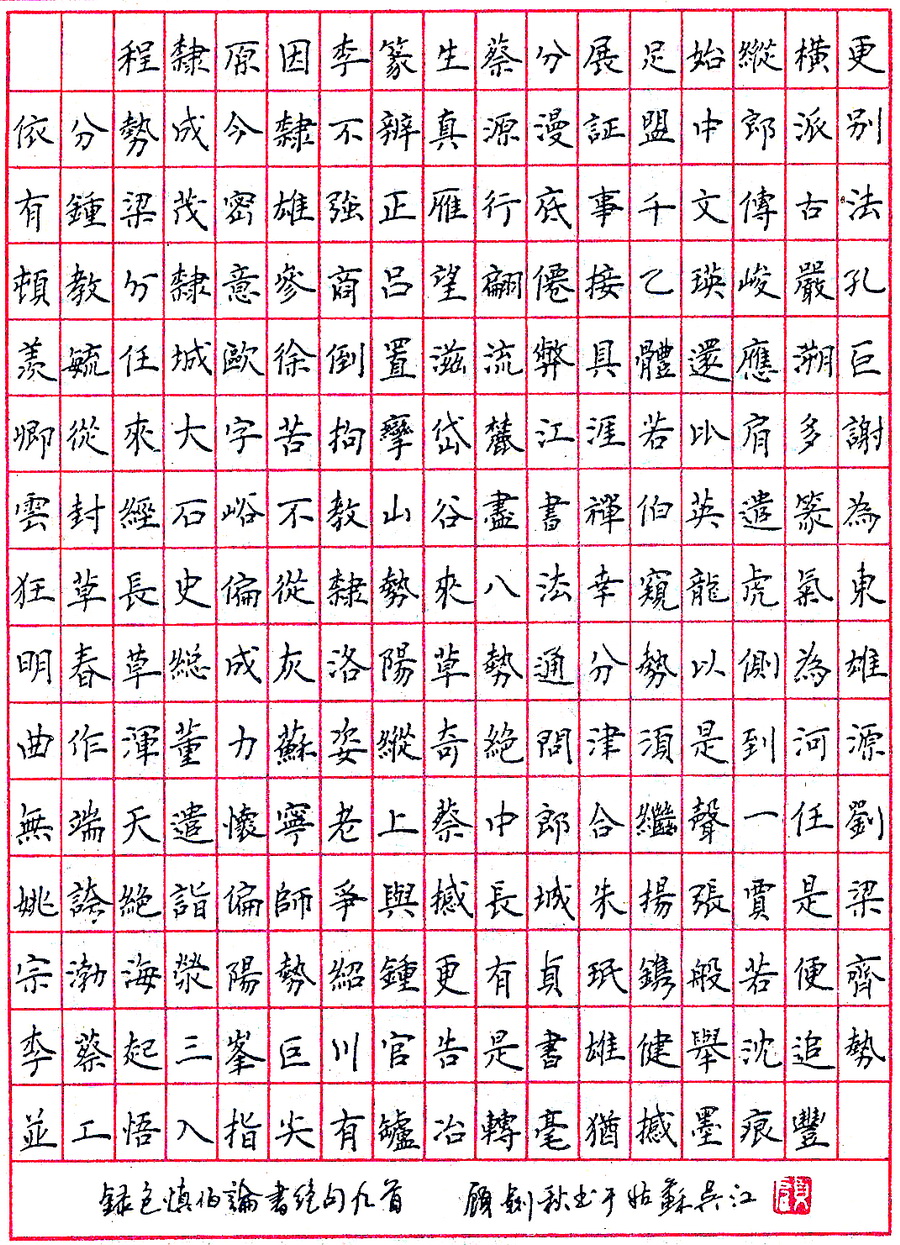 程隸原因李篆生蔡分展足始縱橫更
依分勢成今隸不辨真源漫証盟中郎派別
有鍾梁茂密雄強正雁行底事千文傳古法
頓教分隸意參商呂望翩僊接乙瑛峻嚴孔
羨毓任城歐徐倒置滋流弊具體還應溯巨
卿從來大字苦拘攣岱麓江涯若比肩多謝
雲封經石峪不教山谷盡書禪伯英遣篆為
狂草長史偏從隸勢來八法幸窺龍虎氣東
明春草總成灰洛陽草勢通分勢以側為雄
曲作渾董力蘇姿縱奇絕問津須是到河源
無端天遣懷寧老上蔡中郎合繼聲一任劉
姚誇絕詣偏師爭與撼長城朱揚張賈是梁
宗渤海滎陽勢紹鍾更有貞珉鐫般若便齊
李蔡起三峯巨川官告是書雄健舉沈追勢
並工悟入指尖有罏冶轉毫猶撼墨痕豐
錄包慎伯論書絕句九首 顧釗秋書于姑蘇吳江
顧